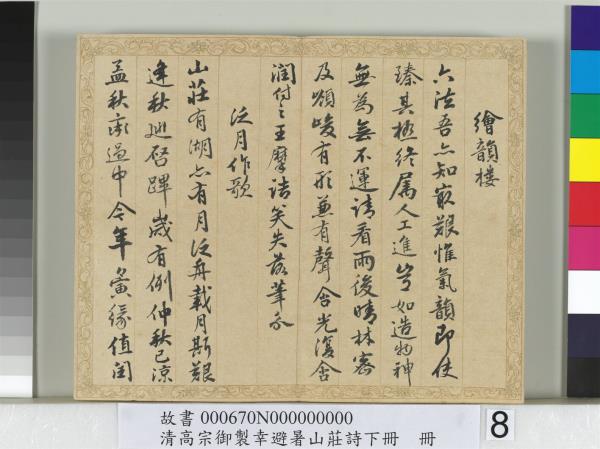 繪韻樓
六法吾亦知最艱惟氣韻即使
臻其極終屬人工進豈如造物神
無為無不運請看雨後晴林容
及嶺峻有形兼有聲含光復含
潤付之王摩詰失落筆不
泛月作歌
山莊有湖亦有月泛舟載月斯艱
逢秋巡啓蹕歲有例仲秋已涼
孟秋中今年夤緣值閏
故書 000670N000000000
清高宗御製幸避暑山莊詩下冊 冊
8